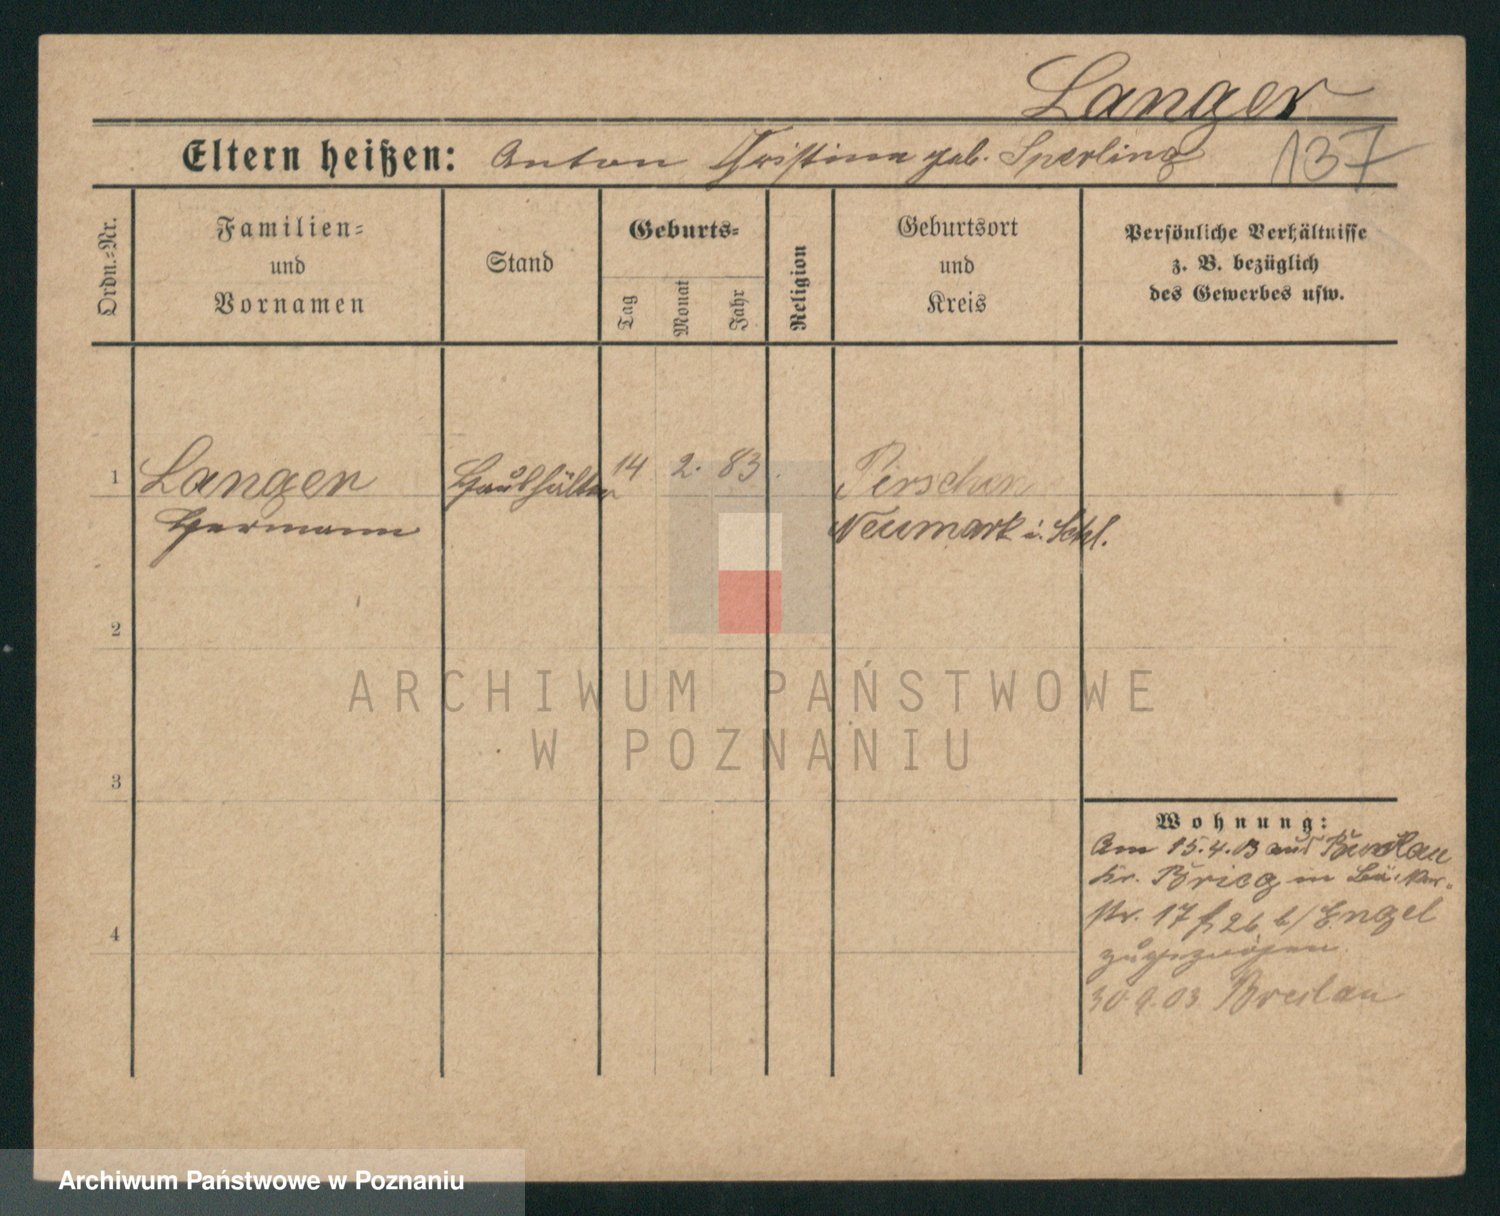 Langer
Eltern heißen: Anton, Christina geb. Sperling
137
Ordn.-Nr.
Familien-
und
Vornamen
Stand
Geburts-
Tag
Monat
Jahr
Religion
Geburtsort
und
Kreis
Persönliche Verhältnisse
z. B. bezüglich
des Gewerbes usw.
1
Langer
Hermann
Haushälter
14 2. 83
Perschen
Neumark i. Schl.
2
3
4
Wohnung:
Am 15.4.03 aus
Kr. Brieg in
str. 17 b/ Engel
zugezogen
30 9.03 Breslau
ARCHIWUM PAŃSTWOWE
W POZNANIU
Archiwum Państwowe w Poznaniu